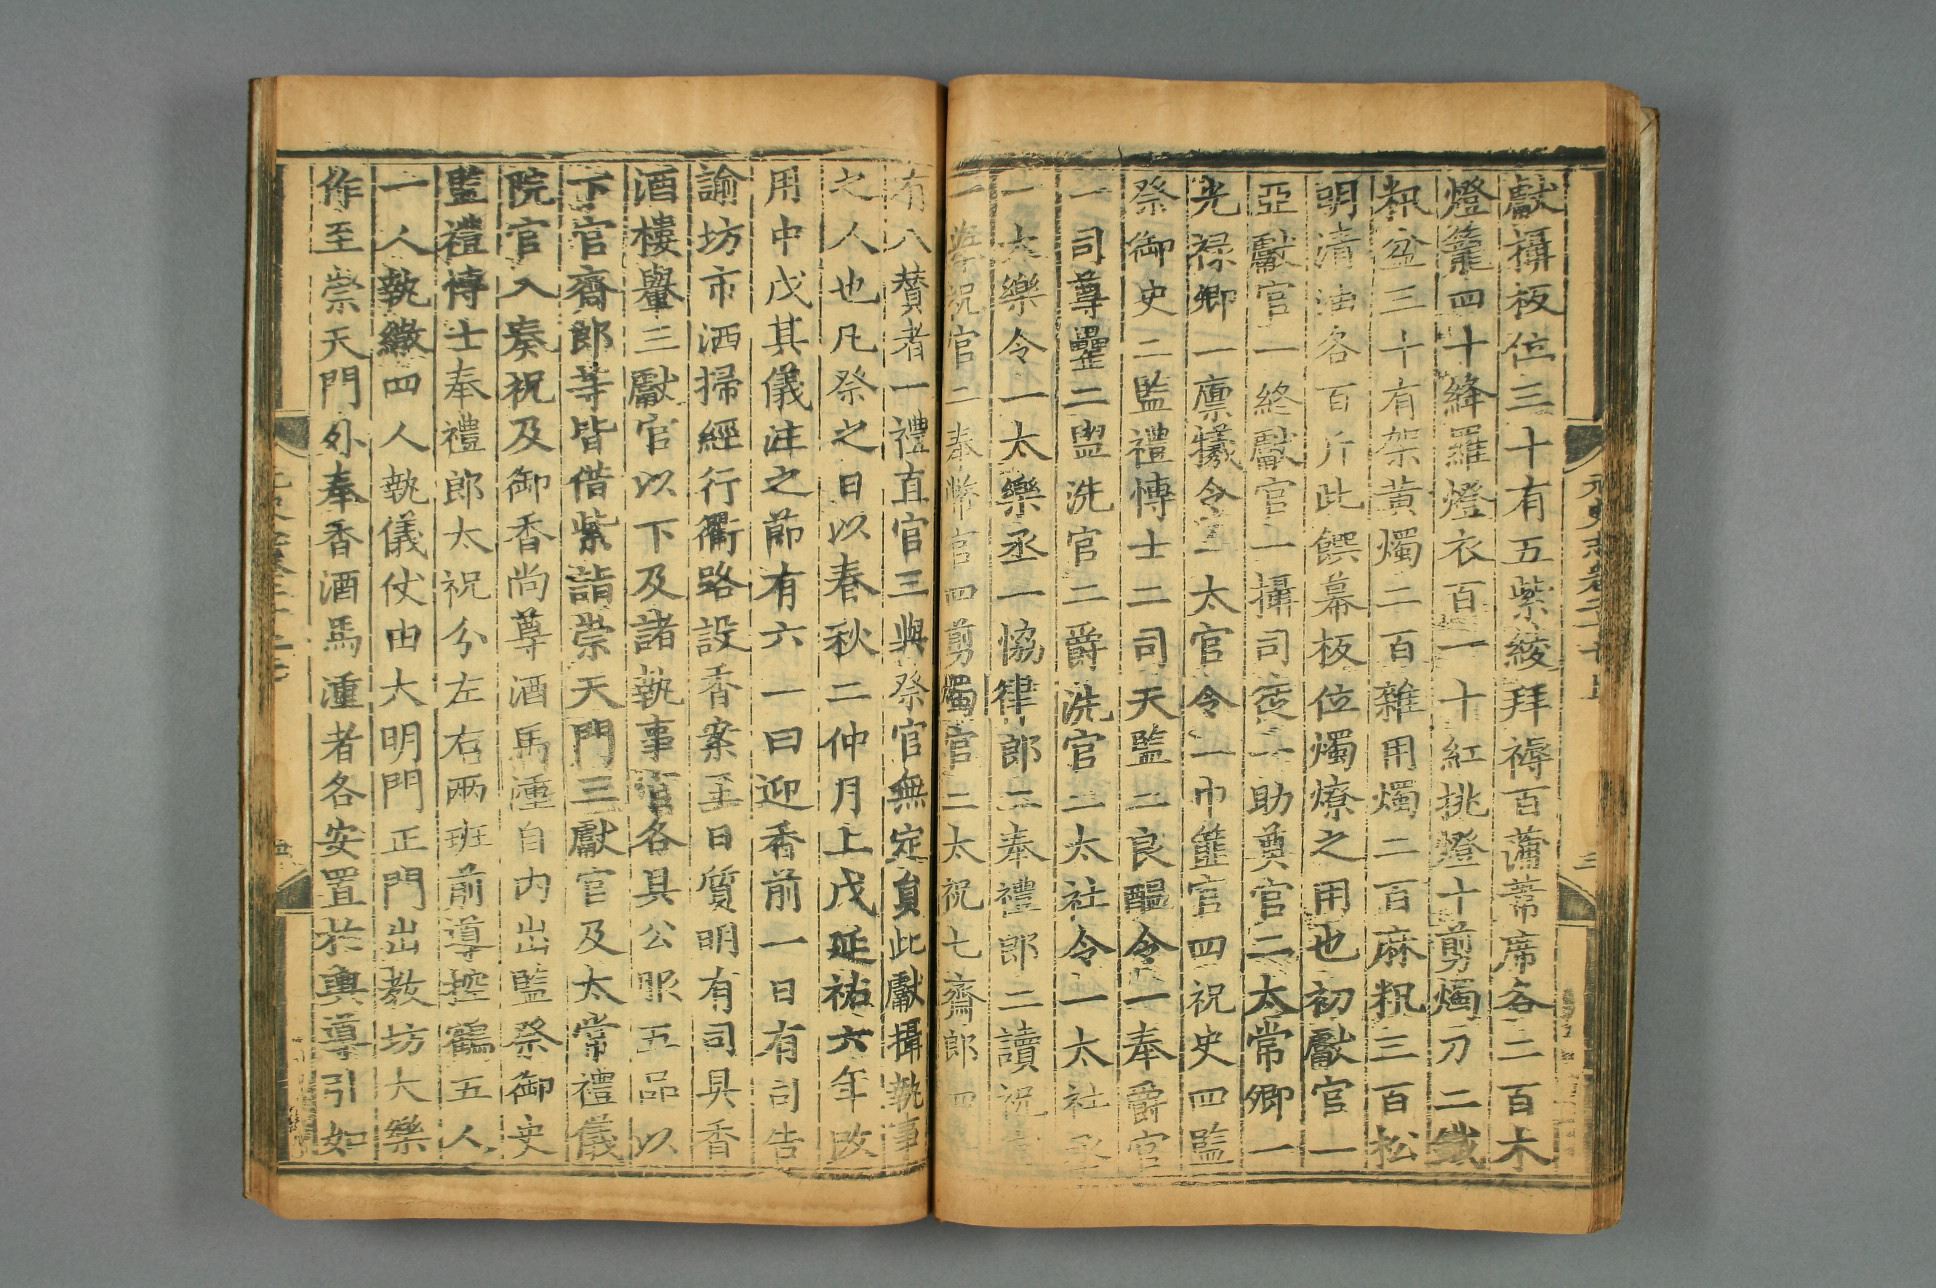 獻攝板位三十有五紫綾拜褥百蒲葦席各二百木
燈籠四十絳羅燈衣百一十紅挑燈十剪燭刀二鐵
籸盆三十有架黃燭二百雜用燭二百麻籸三百松
明清油各百斤此饌幕板位燭燎之用也初獻官一
亞獻官一終獻官一攝司徒一助奠官二太常卿一
光祿卿一廩犧令一太官令一巾篚官四祝史四監
祭御史二監禮博士二司天監二良醞令一奉爵官
一司尊罍二盥洗官二爵洗官二太社令一太社丞
一太樂令一太樂丞一恊律郎二奉禮郎二讀祝
一 祝官二奉幣官四剪燭官二太祝七齋郎四
有八贊者一禮直官三與祭官無定員此獻攝執事
之人也凡祭之日以春秋二仲月上戊延祐六年改
用中戊其儀注之節有六一曰迎香前一日有司告
諭坊市洒掃經行衢路設香案至日質明有司具香
酒樓轝三獻官以下及諸執事官各具公服五品以
下官齋郎等皆借紫詣崇天門三獻官及太常禮儀
院官入奏祝及御香尚尊酒馬湩自內出監祭御史
監禮博士奉禮郎太祝分左右兩班前導控鶴五人
一人執繖四人執儀仗由大明門正門出教坊大樂
作至崇天門外奉香酒馬湩者各安置於輿導引如
元史志卷二十七上
三